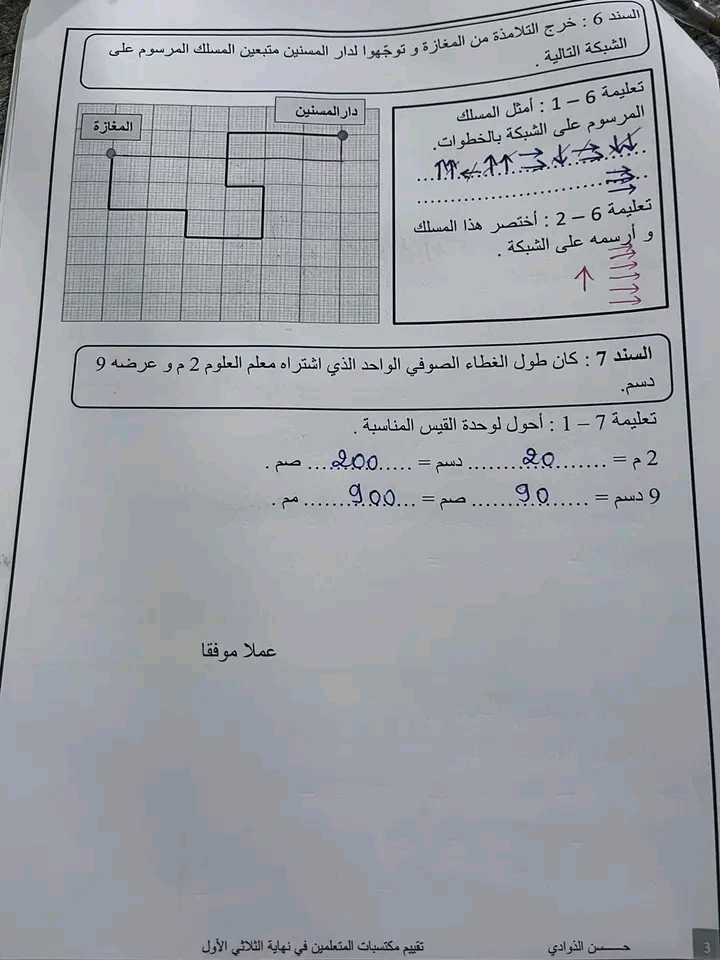 السند 6 : خرج التلامذة من المغازة و توجّهوا لدار المسنين متبعين المسلك المرسوم على
الشبكة التالية .
تعليمة 6 – 1 : أمثل المسلك
المرسوم على الشبكة بالخطوات.
↓↓ → ↓ → ↑↑ ← ↑↑
→
→
تعليمة 6 – 2 : أختصر هذا المسلك
و أرسمه على الشبكة .
دار المسنين
المغازة
السند 7 : كان طول الغطاء الصوفي الواحد الذي اشتراه معلم العلوم 2 م و عرضه 9
دسم.
تعليمة 7 – 1 : أحول لوحدة القيس المناسبة .
2 م = .......20....... دسم = .....200..... صم .
9 دسم = ......90...... صم = ....900.... مم .
عملا موفقا
حـــسن الذوادي تقييم مكتسبات المتعلمين في نهاية الثلاثي الأول
3